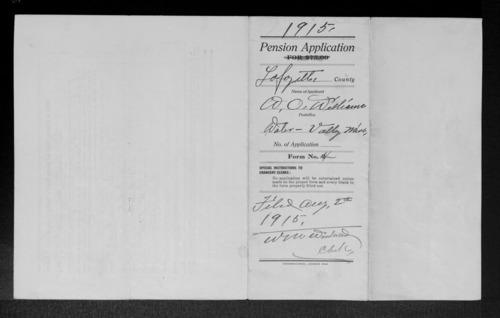 1915.
Pension Application
FOR $75.00
Lafayette County
Name of Applicant
W. O. Williams
Postoffice
Water-Valley Miss,
No. of Application
Form No. 4
SPECIAL INSTRUCTIONS TO
CHANCERY CLERKS:
No application will be entertained unless
made on the proper form and every blank in
the form properly filled out.
Filed Aug. 2nd
1915.
Clerk,